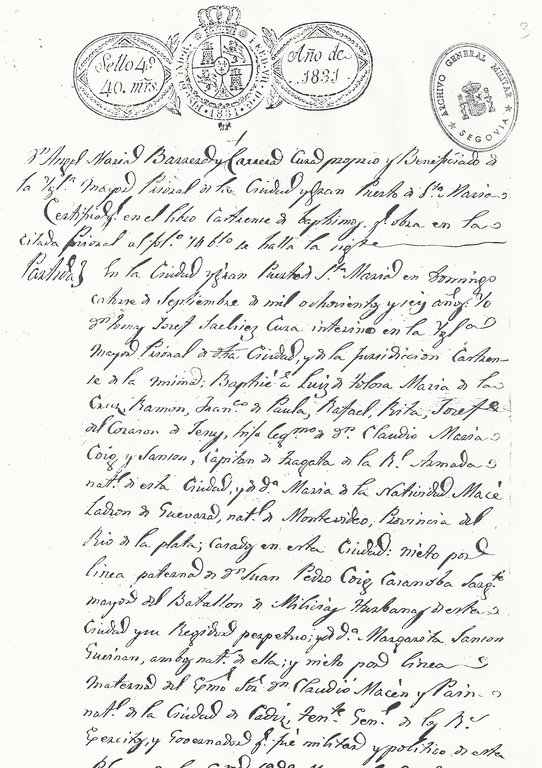 3
Sello 4º
40. mrs.
HISPANIARUM
1831
Año de
1831
ARCHIVO GENERAL MILITAR
SEGOVIA
Dn Angel Maria Barrero y Carrera Cura proprio y Beneficiado de
la Ygla. mayor Prioral de la Ciudad y gran Puerto de Sta. Maria
Certifico: en el libro Castrense de baptismos, q. obra en la
citada Prioral al fol.º 146 bto se halla la sigte
Partida
En la Ciudad y gran Puerto de Sta Maria en Domingo
catorce de Septiembre de mil ochocientos y seis años: Yo
Dn Josef Cura interino en la Ygla
mayor Prioral de dha Ciudad, y de la Jurisdiccion Castren-
se de la misma: Bapticé á Luis de Tolosa Maria de la
Cruz, Ramon, Franco de Paula, Rafael, Rita, Josef
del Corazon de Jesus, hijo legmo de Dn. Claudio Maria
Coig y Sanson, Capitan de Fragata de la Rl Armada
natl. de esta Ciudad, y de Da. Maria de la Natividad Macé
Ladron de Guevara, natl. de Montevideo, Provincia del
Rio de la plata; casados en esta Ciudad: nieto por
linea paterna de Dn Juan Pedro Coig Casanoba Sargto
mayor del Batallon de Milicias Hurbanas de esta
Ciudad y su Regidor perpetuo; y de Da. Margarita Sanson
ambos nats. de ella; y nieto por linea
materna del Exmo Sor Dn Claudio Macén y Pain-
natl. de la Ciudad de Cadiz, Tente Genl. de los Rs
Exercitos, y Governador q. fué militar y politico de esta